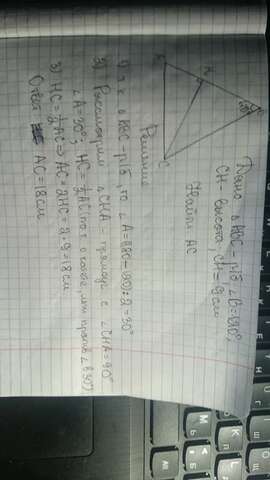 Дано: △ABC – р/б, ∠B=120°,
CH – высота, CH = 9 см
Найти: AC
B
120°
H
C
Решение
1) т.к △ABC – р/б, то ∠A = (180-120):2=30°
2) Рассмотрим △CHA – прямоуг с ∠CHA=90°
∠A=30°; HC=½AC (по т. о катете, леж против ∠ в 30°)
3) HC=½AC ⇒ AC=2HC=2·9=18см
Ответ AC=18см
Ь
Б
Alt